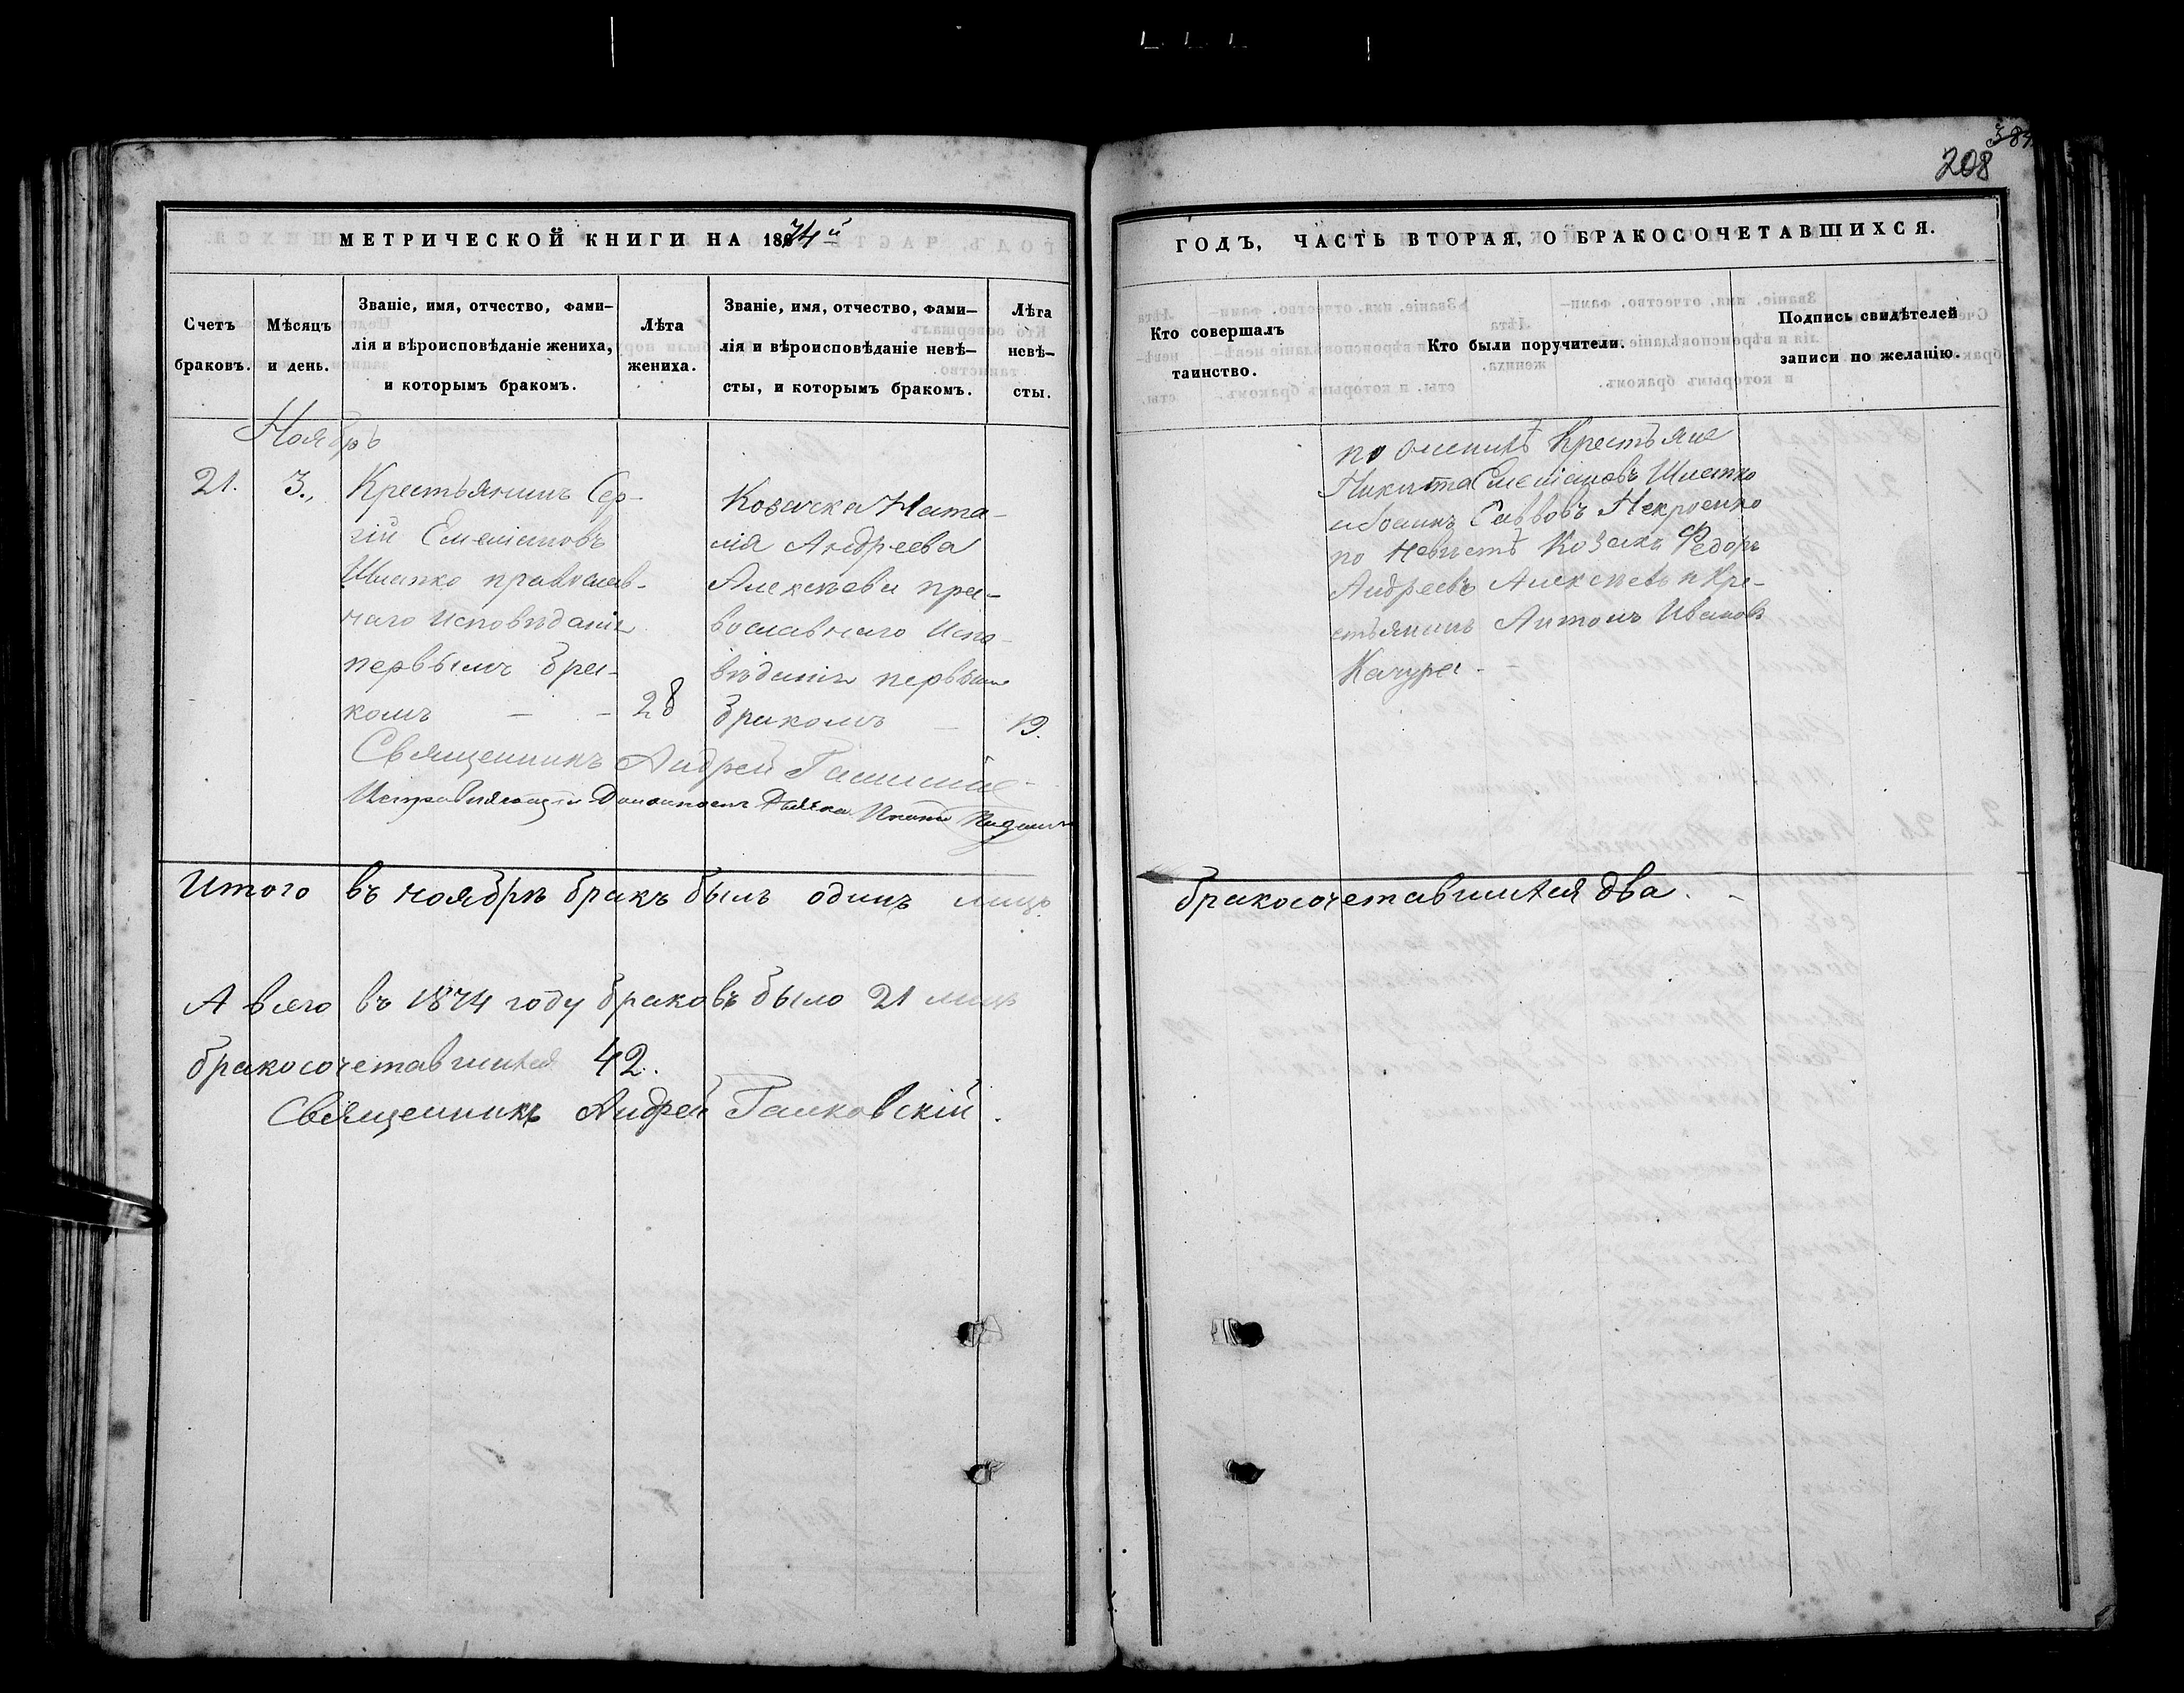 384
208
МЕТРИЧЕСКОЙ КНИГИ НА 1874й
ГОДЪ, ЧАСТЬ ВТОРАЯ, О БРАКОСОЧЕТАВШИХСЯ.
Счетъ браковъ.
Мѣсяцъ и день.
Званіе, имя, отчество, фами-
лія и вѣроисповѣданіе жениха,
и которымъ бракомъ.
Лѣта
жениха.
Званіе, имя, отчество, фами-
лія и вѣроисповѣданіе невѣ-
сты, и которымъ бракомъ.
Лѣта
невѣ-
сты.
Кто совершалъ
таинство.
Кто были поручители.
Подпись свидѣтелей
записи по желанію.
Ноябрь
21.
3.
Крестьянинъ Сер-
гій Емеліановъ
Шматко православ-
наго исповѣданія
первымъ бра-
комъ
28
Козачка Ната-
лія Андреева
Алексѣева пра-
вославнаго испо-
вѣданія первымъ
бракомъ
19.
Священникъ Андрей
Исправляющій Должность Дьячка
по женихѣ Крестьяне
Никита Емеліановъ Шматко
Саввовъ
по невѣстѣ Козакъ Федоръ
Андреевъ Алексѣевъ и Кре-
стьянинъ Антонъ Ивановъ
Качура
Итого въ ноябрѣ бракъ былъ одинъ лицъ
бракосочетавшихся два.
А всего въ 1874 году браковъ было 21 лицъ
бракосочетавшихся 42.
Священникъ Андрей Галковскій.